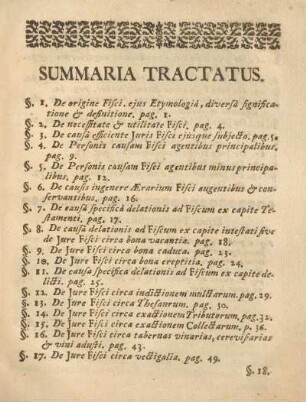 SUMMARIA TRACTATUS.
§. 1. De origine Fisci, ejus Etymologiâ, diversâ significa-
tione & definitione. pag. 1.
§. 2. De necessitate & utilitate Fisci. pag. 4.
§. 3. De causâ efficiente Juris Fisci ejusque subjecto. pag. 5.
§. 4. De Personis causam Fisci agentibus principalibus,
pag. 9.
§. 5. De Personis causam Fisci agentibus minus princi-
palibus, pag. 12.
§. 6. De causis in genere Ærarium Fisci augentibus & con-
servantibus, pag. 16.
§. 7. De causâ specificâ delationis ad Fiscum ex capite Te-
stamenti. pag. 17.
§. 8. De causâ delationis ad Fiscum ex capite intestati sive
de Jure Fisci circa bona vacantia. pag. 18.
§. 9. De Jure Fisci circa bona caduca. pag. 23.
§. 10. De Jure Fisci circa bona ereptitia. pag. 24.
§. 11. De causâ specifica delationis ad Fiscum ex capite de-
licti. pag. 25.
§. 12. De Jure Fisci circa indictionem mulctarum. pag. 29.
§. 13. De Jure Fisci circa Thesaurum. pag. 30.
§. 14. De Jure Fisci circa exactionem Tributorum, pag. 32.
§. 15. De Jure Fisci circa exactionem Collectarum. p. 36.
§. 16. De Jure Fisci circa tabernas vinarias, cerevisiarias
& vini adusti. pag. 43.
§. 17. De Jure Fisci circa vectigalia. pag. 49.
§. 18.